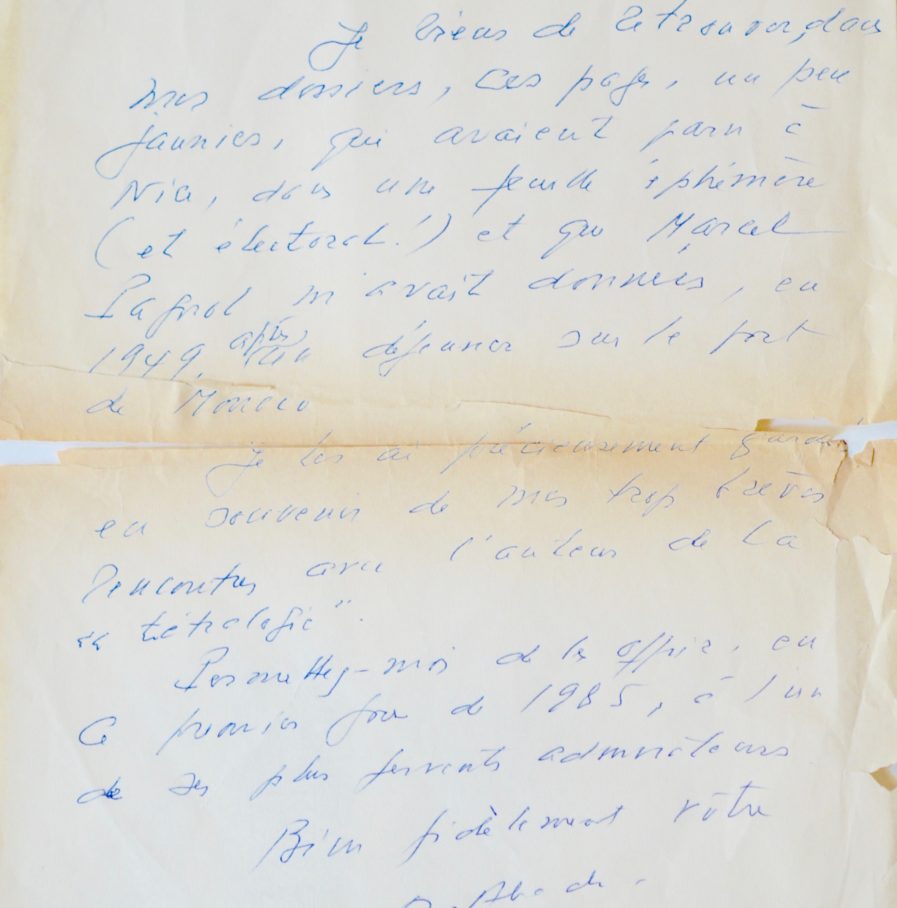 Je viens de retrouver, dans
mes dossiers, ces pages, un peu
jaunies, qui avaient paru à
Nice, dans une feuille éphémère
(et électorale!) et que Marcel
Pagnol m'avait données, en
1949, après un déjeuner sur le port
de Monaco
Je les ai précieusement gardées
en souvenir de mes trop brèves
rencontres avec l'auteur de la
"tétralogie".
Permettez-moi de les offrir, en
ce premier jour de 1985, à l'un
de ses plus fervents admirateurs
Bien fidèlement vôtre